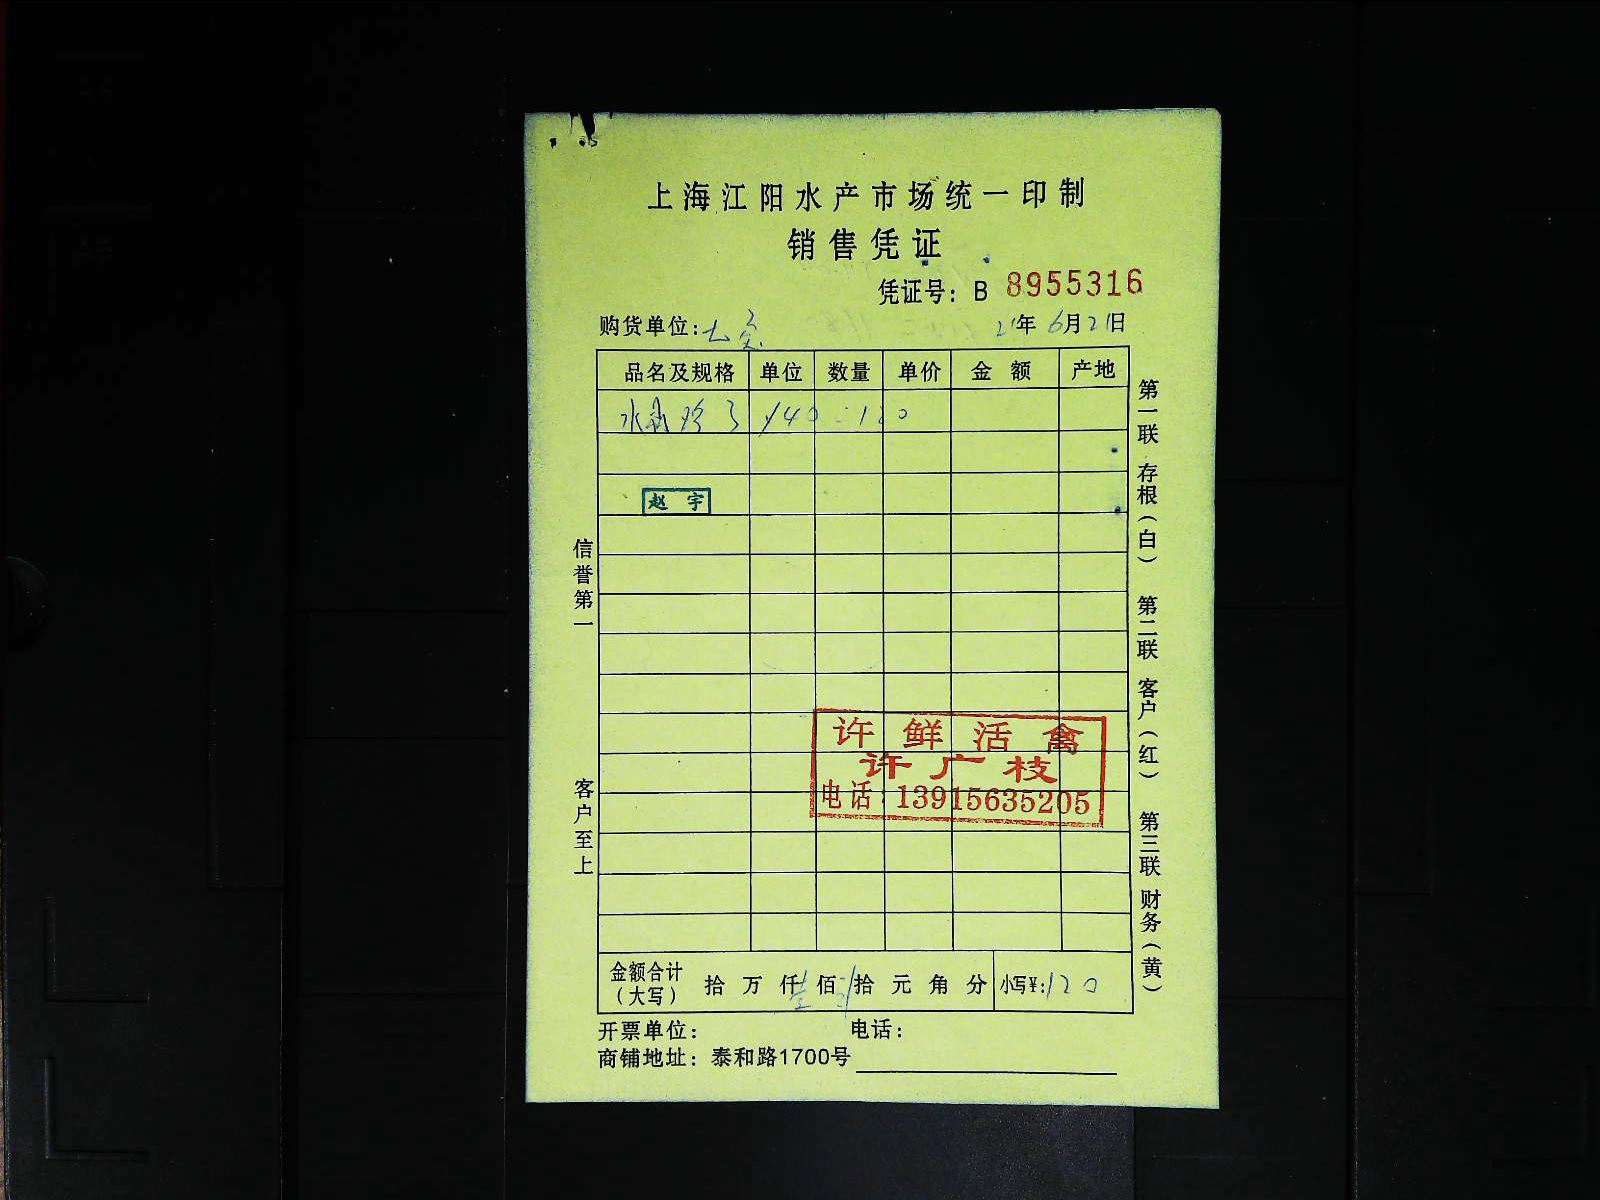 上海江阳水产市场统一印制
销售凭证
凭证号：B 8955316
购货单位：七宝 21年6月21日
品名及规格 单位 数量 单价 金额 产地
水 3 140 =120
赵宇
信誉第一
客户至上
许鲜活禽
许广枝
电话：13915635205
第一联 存根（白） 第二联 客户（红） 第三联 财务（黄）
金额合计（大写） 拾 万 仟 壹 佰 拾 元 角 分 小写¥：120
开票单位： 电话：
商铺地址：泰和路1700号